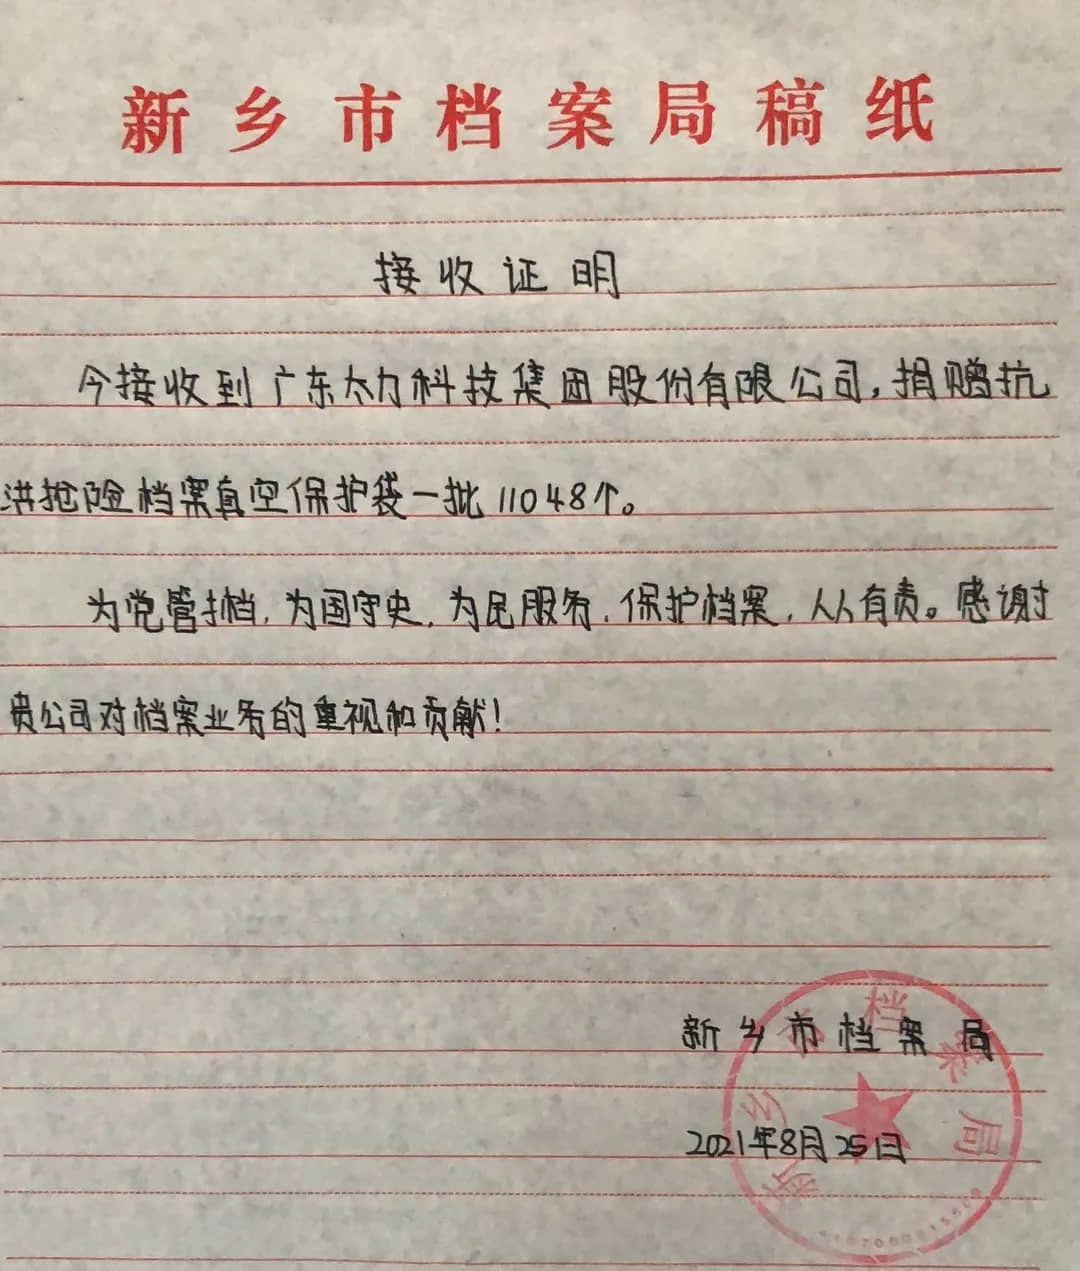 新乡市档案局稿纸
接收证明
今接收到广东太力科技集团股份有限公司,捐赠抗
洪抢险档案真空保护袋一批11048个。
为党管档,为国守史,为民服务,保护档案,人人有责。感谢
贵公司对档案业务的重视和贡献!
新乡市档案局
2021年8月25日
新乡市档案局